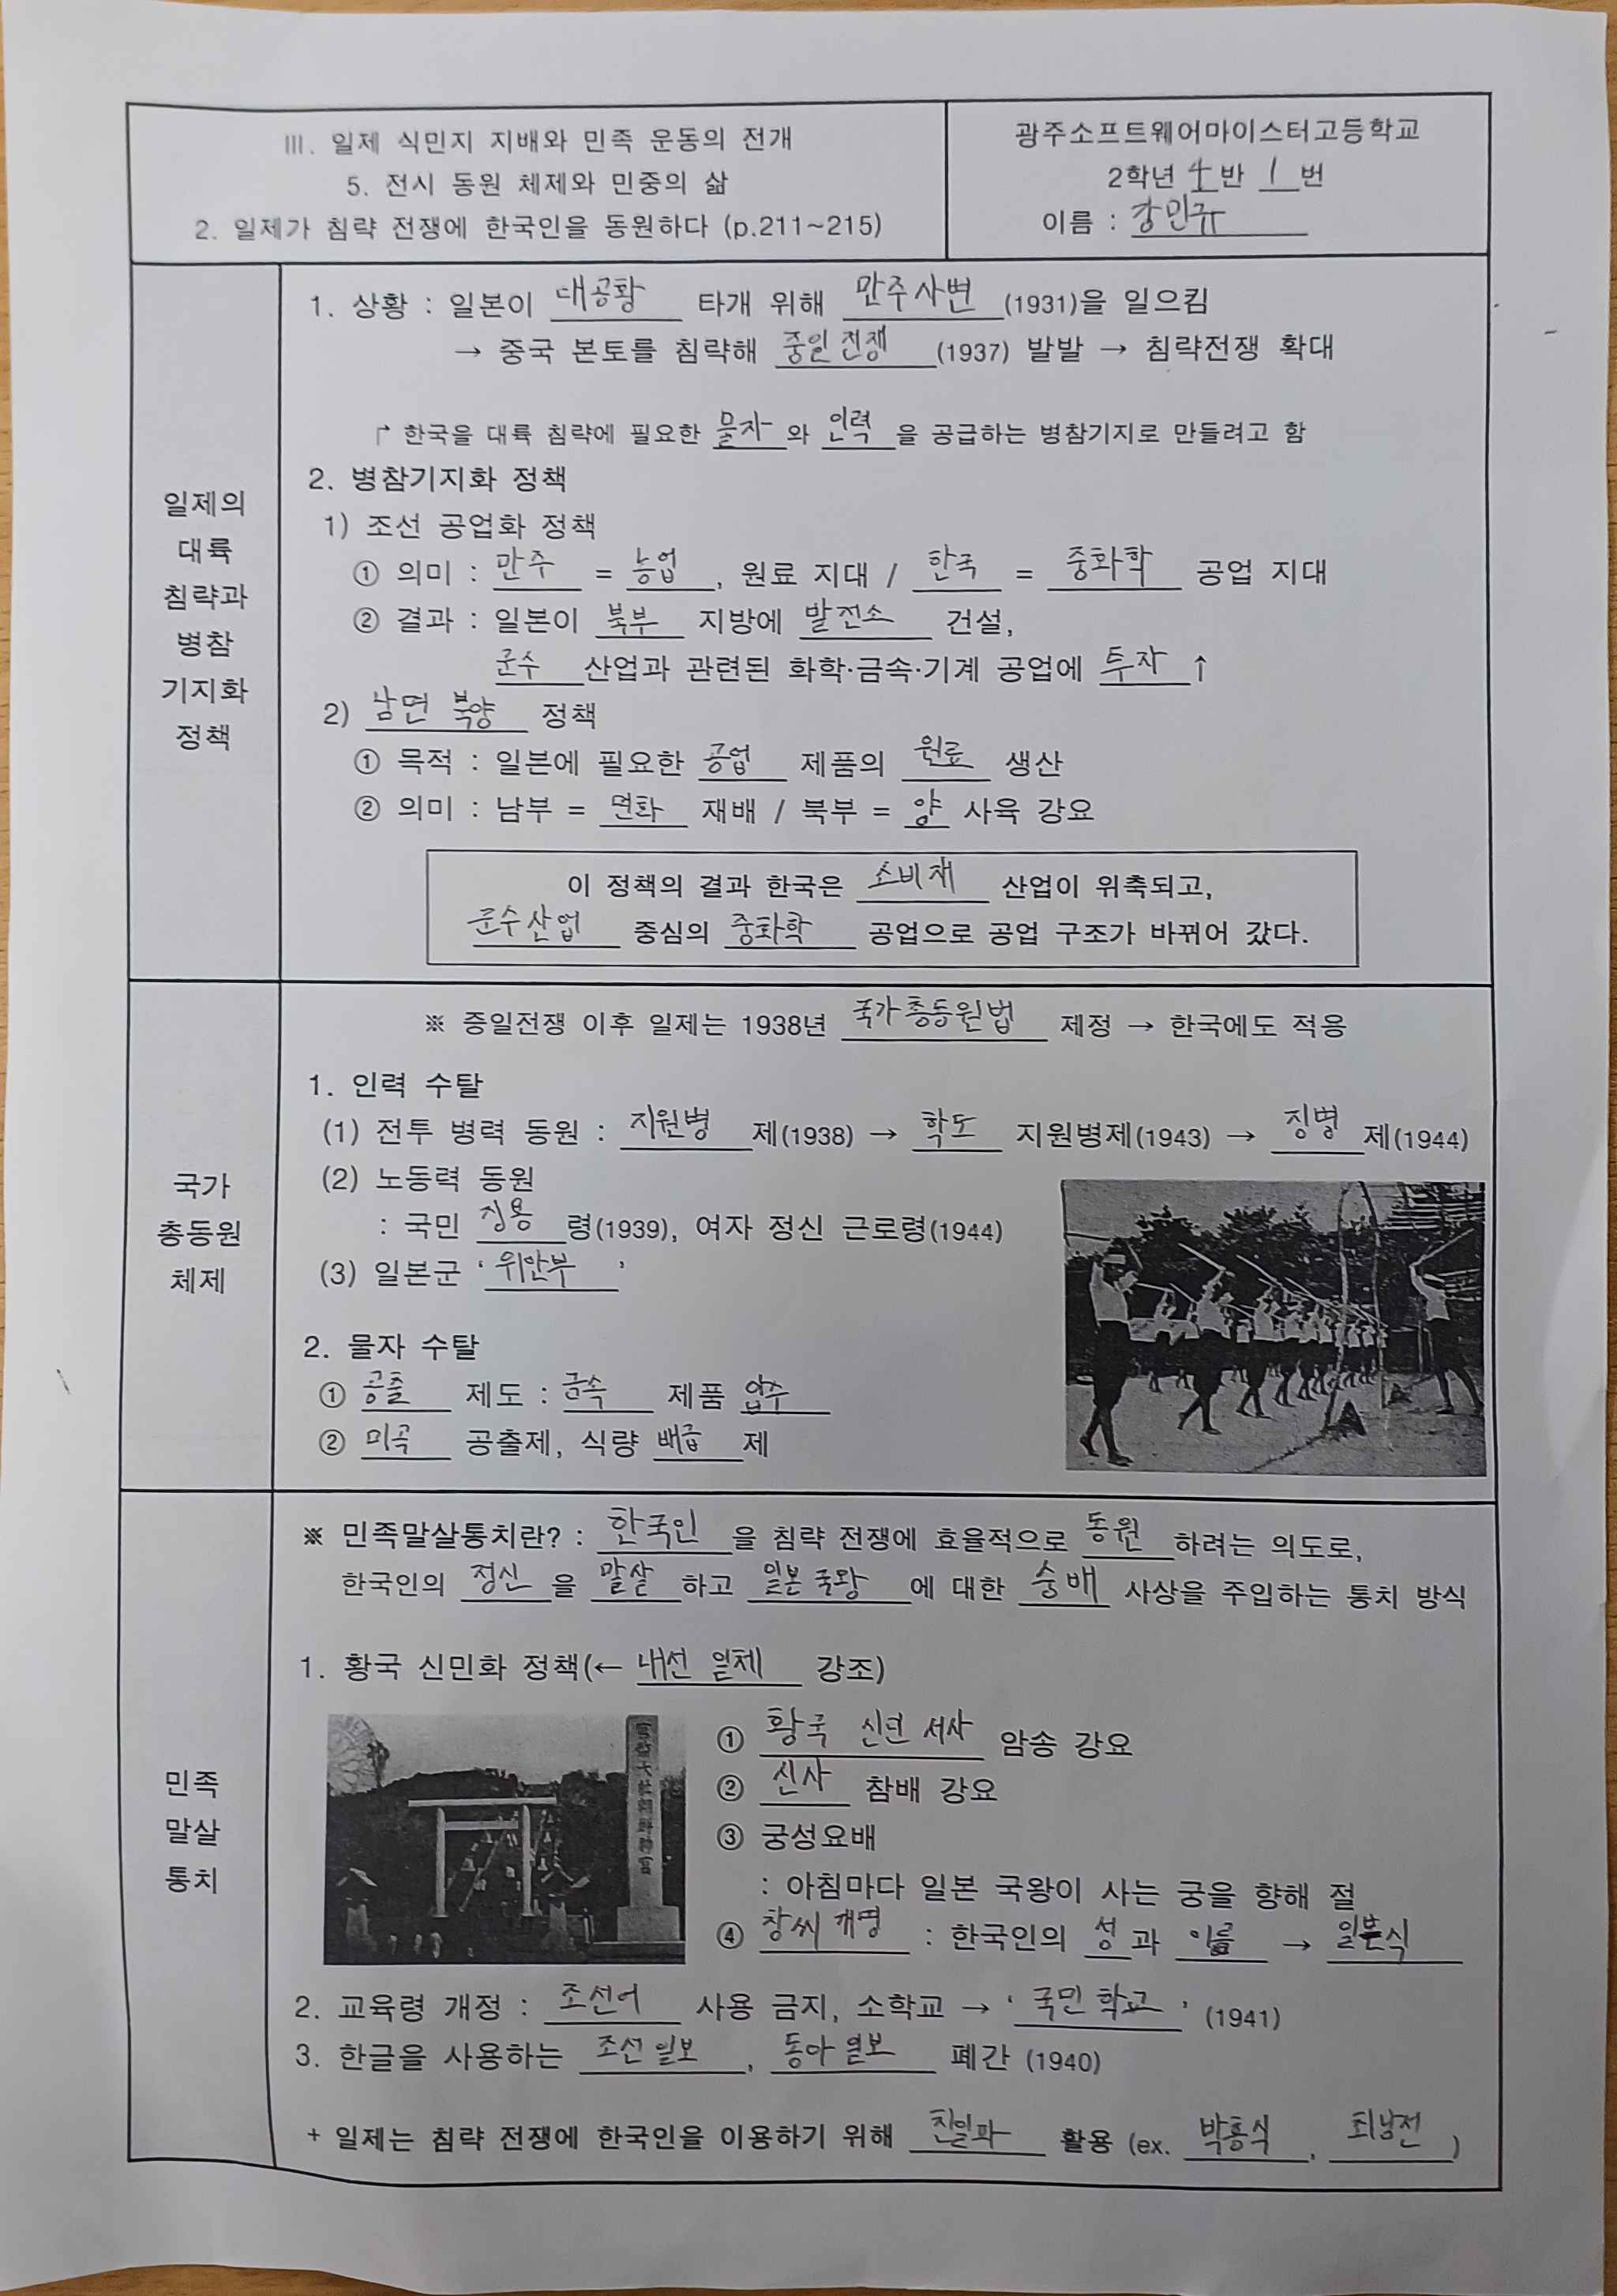 Ⅲ. 일제 식민지 지배와 민족 운동의 전개
5. 전시 동원 체제와 민중의 삶
2. 일제가 침략 전쟁에 한국인을 동원하다 (p.211~215)
광주소프트웨어마이스터고등학교
2학년 4반 1번
이름 : 강민규
일제의
대륙
침략과
병참
기지화
정책
1. 상황 : 일본이 대공황 타개 위해 만주사변(1931)을 일으킴
→ 중국 본토를 침략해 중일전쟁 (1937) 발발 → 침략전쟁 확대
↱ 한국을 대륙 침략에 필요한 물자 와 인력 을 공급하는 병참기지로 만들려고 함
2. 병참기지화 정책
1) 조선 공업화 정책
① 의미 : 만주 = 농업, 원료 지대 / 한국 = 중화학 공업 지대
② 결과 : 일본이 북부 지방에 발전소 건설,
군수 산업과 관련된 화학·금속·기계 공업에 투자↑
2) 남면 북양 정책
① 목적 : 일본에 필요한 공업 제품의 원료 생산
② 의미 : 남부 = 면화 재배 / 북부 = 양 사육 강요
이 정책의 결과 한국은 소비재 산업이 위축되고,
군수산업 중심의 중화학 공업으로 공업 구조가 바뀌어 갔다.
국가
총동원
체제
※ 중일전쟁 이후 일제는 1938년 국가총동원법 제정 → 한국에도 적용
1. 인력 수탈
(1) 전투 병력 동원 : 지원병 제(1938) → 학도 지원병제(1943) → 징병제(1944)
(2) 노동력 동원
: 국민 징용 령(1939), 여자 정신 근로령(1944)
(3) 일본군 ‘위안부’
2. 물자 수탈
① 공출 제도 : 금속 제품 압수
② 미곡 공출제, 식량 배급 제
민족
말살
통치
※ 민족말살통치란? : 한국인 을 침략 전쟁에 효율적으로 동원 하려는 의도로,
한국인의 정신 을 말살 하고 일본 국왕 에 대한 숭배 사상을 주입하는 통치 방식
1. 황국 신민화 정책(← 내선 일체 강조)
① 황국 신민 서사 암송 강요
② 신사 참배 강요
③ 궁성요배
: 아침마다 일본 국왕이 사는 궁을 향해 절
④ 창씨 개명 : 한국인의 성 과 이름 → 일본식
2. 교육령 개정 : 조선어 사용 금지, 소학교 → ‘국민 학교’ (1941)
3. 한글을 사용하는 조선일보, 동아일보 폐간 (1940)
+ 일제는 침략 전쟁에 한국인을 이용하기 위해 친일파 활용 (ex. 박흥식, 최남선)